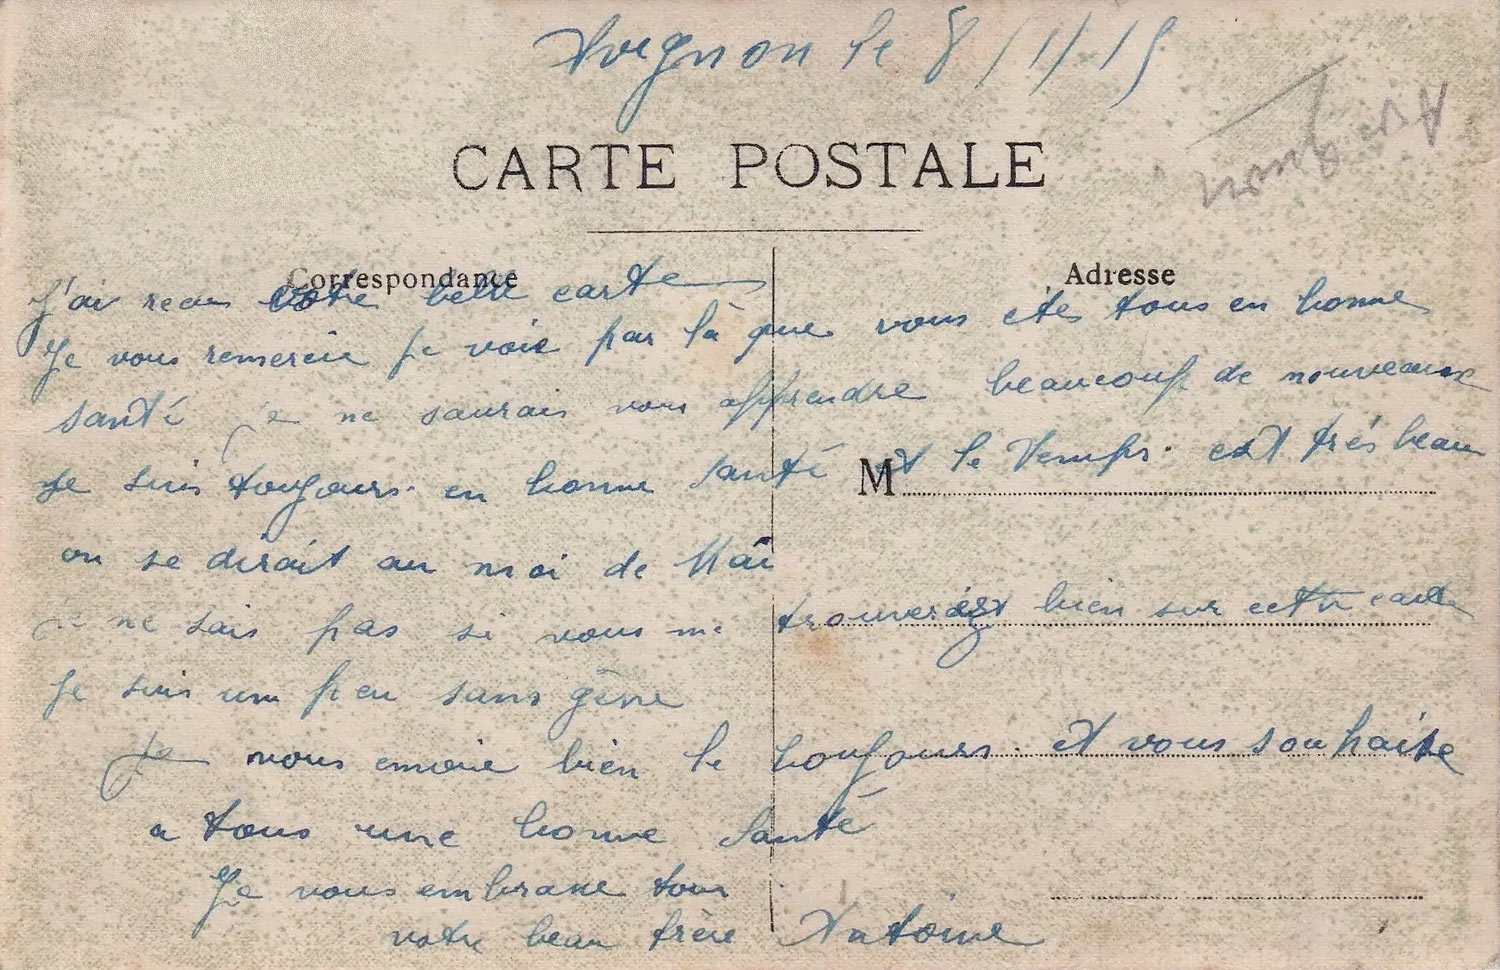 Avignon le 8/1/15
Avignon
CARTE POSTALE
Correspondance
Adresse
J'ai recu votre belle carte
Je vous remercie je voie par là que vous etes tous en bonne
santé je ne saurais vous apprendre beaucoup de nouveaux
Je suis toujours en bonne santé et le Temps est très beau
M
on se dirait au moi de Mai
je ne sais pas si vous me trouverez bien sur cette carte
Je suis un peu sans gène
Je vous envoie bien le bonjours et vous souhaite
a tous une bonne Santé
Je vous embrasse tous
votre beau frère Antoine